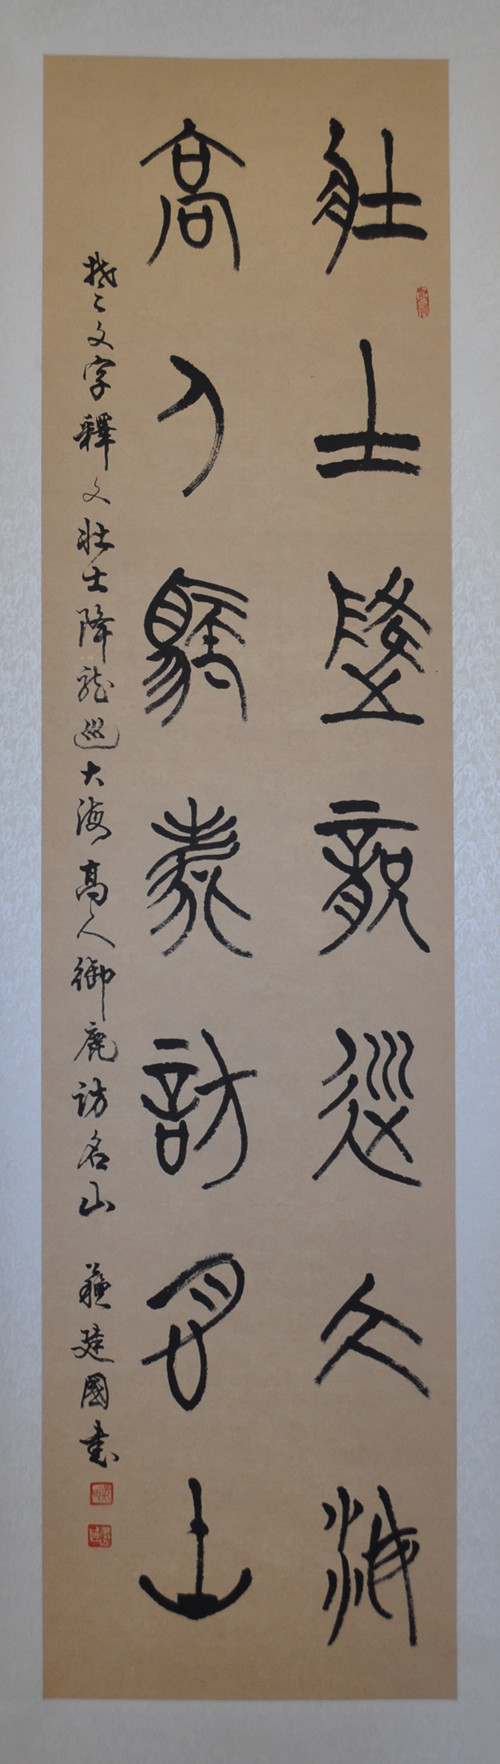 壯士降龍巡大海
高人御鹿訪名山
文字釋文壯士降龍巡大海高人御鹿訪名山 蘇建國書